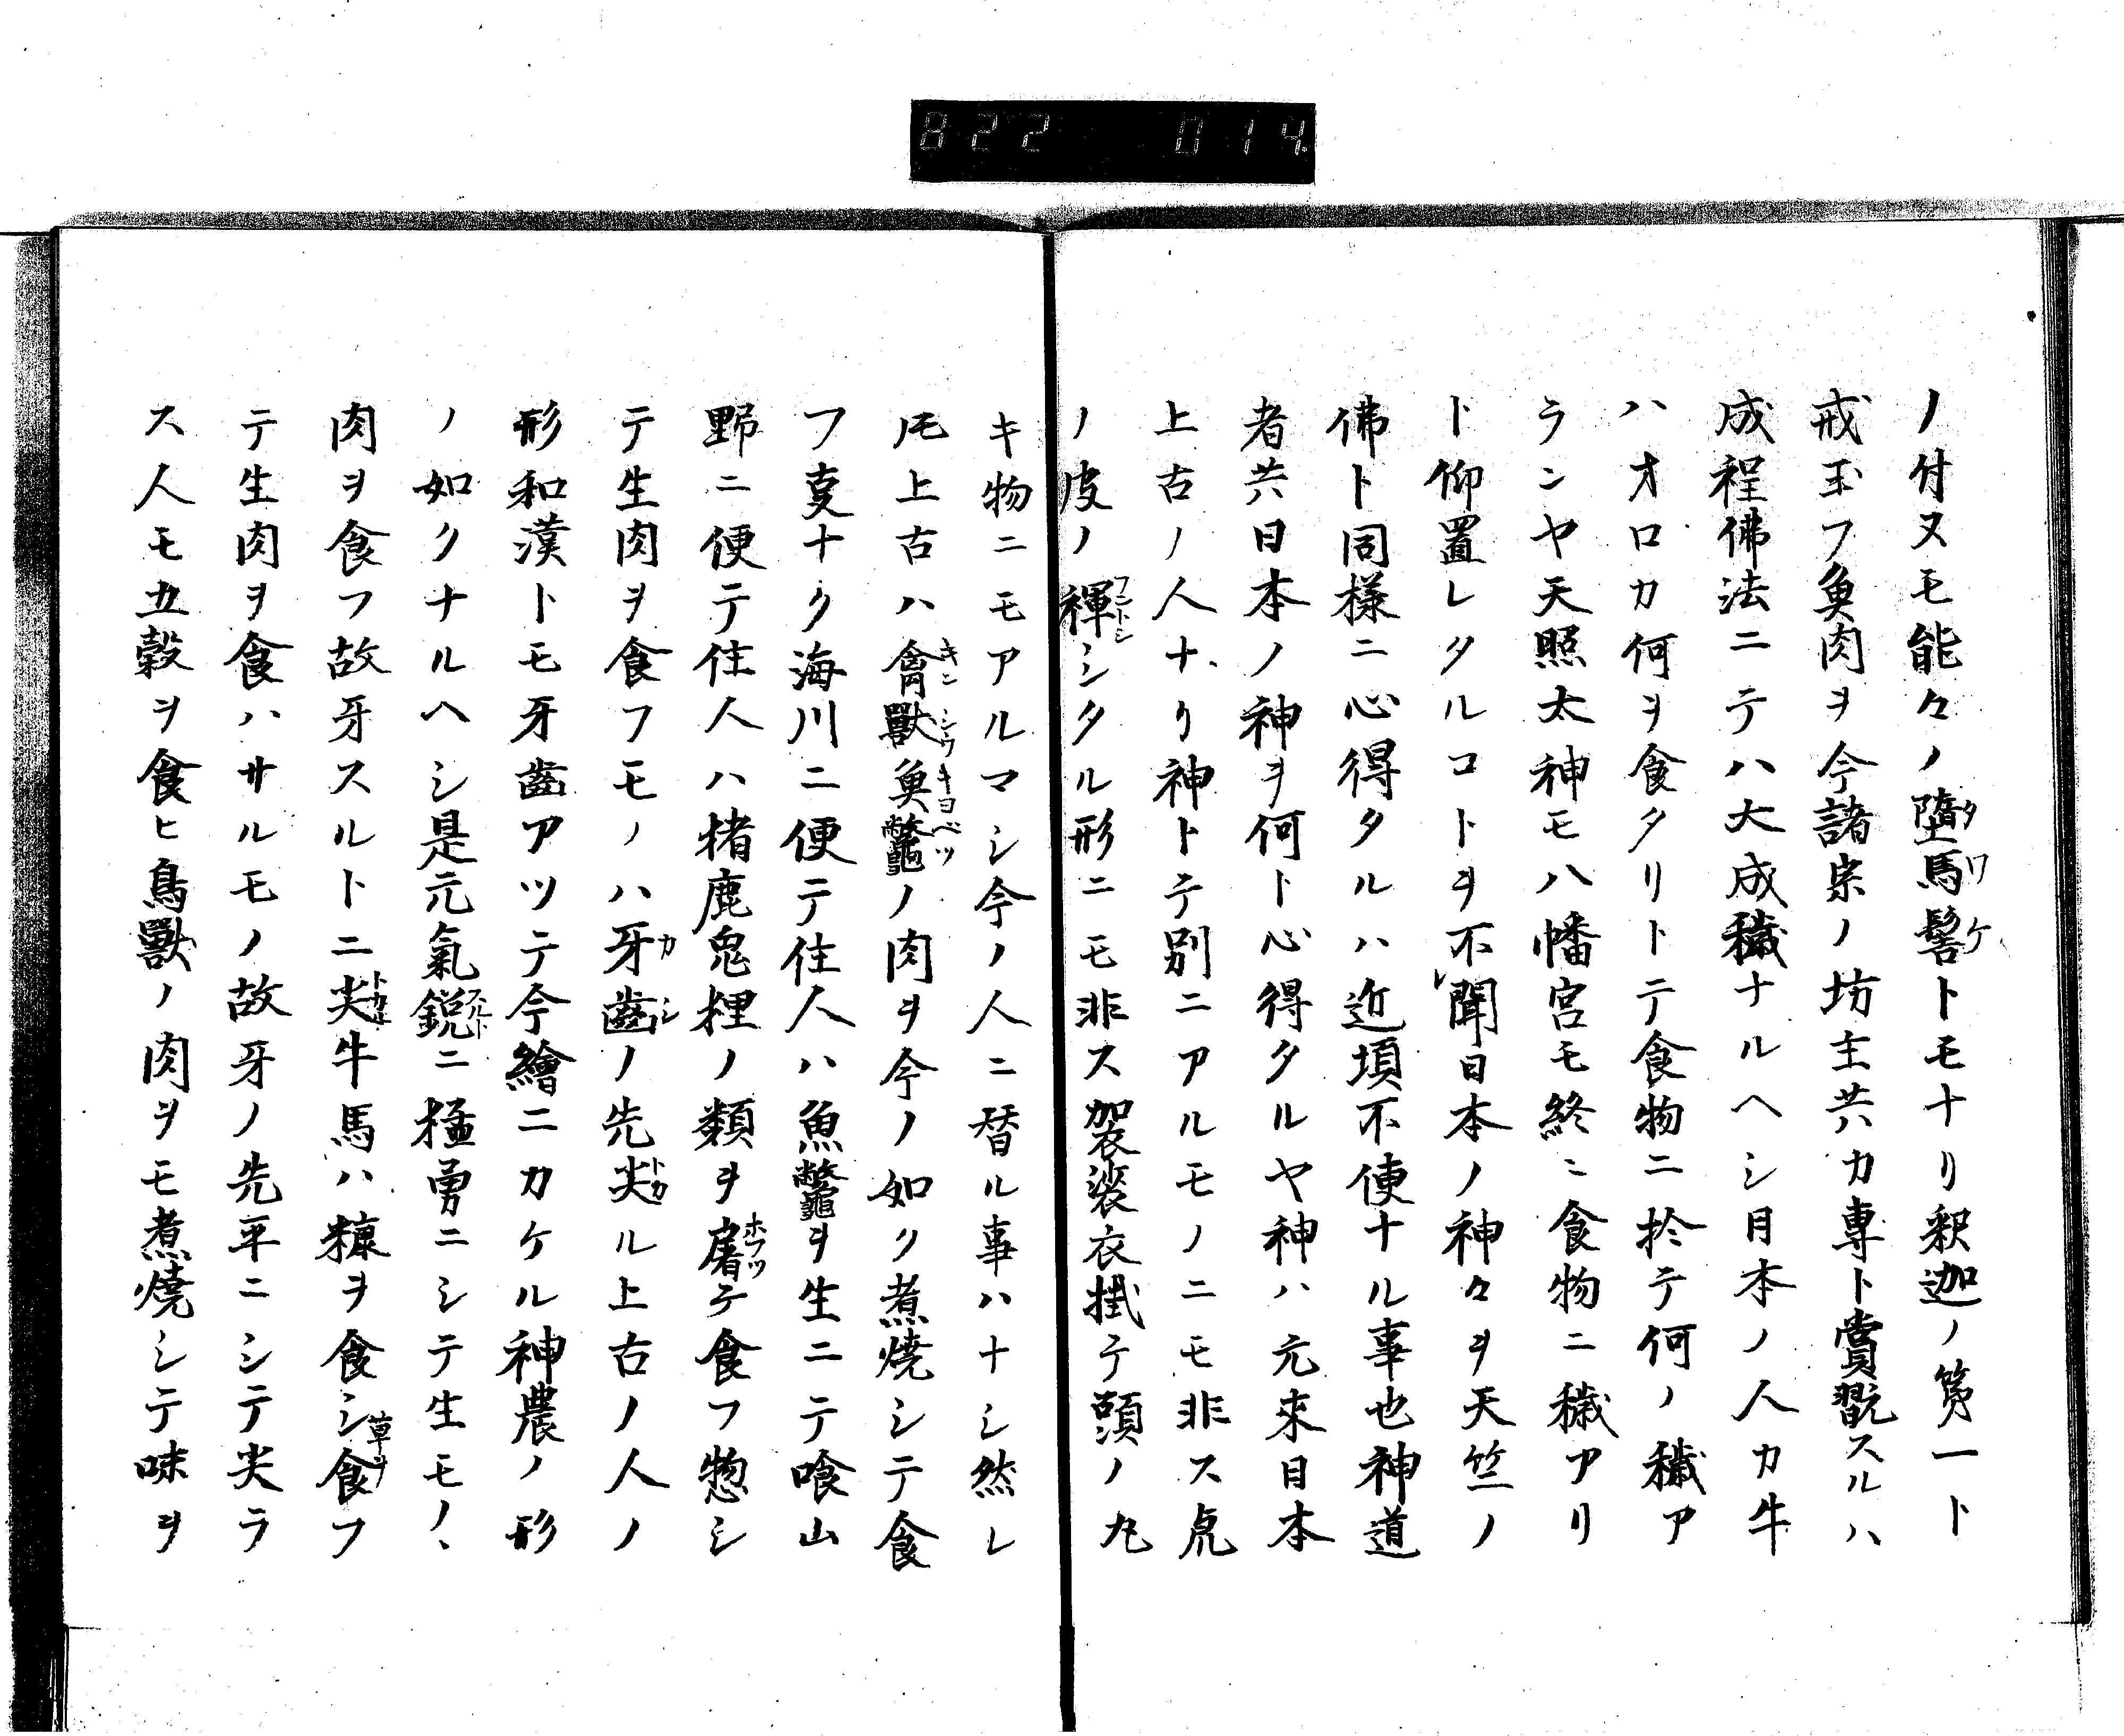 822 014
ノ付ヌモ能々ノ墮馬髻トモナリ釈迦ノ第一ト
戒玉フ魚肉ヲ今諸宗ノ坊主共カ専ト賞翫スルハ
成程佛法ニテハ大成穢ナルヘシ日本ノ人カ牛
ハオロカ何ヲ食タリトテ食物ニ於テ何ノ穢ア
ランヤ天照太神モ八幡宮モ終ニ食物ニ穢アリ
ト仰置レタルコトヲ不聞日本ノ神々ヲ天竺ノ
佛ト同様ニ心得タルハ近頃不便ナル事也神道
者共日本ノ神ヲ何ト心得タルヤ神ハ元来日本
上古ノ人ナリ神トテ別ニアルモノニモ非ス虎
ノ皮ノ褌シタル形ニモ非ス袈裟衣掛テ頭ノ丸
キ物ニモアルマシ今ノ人ニ替ル事ハナシ然レ
𪜈上古ハ禽獸魚鼈ノ肉ヲ今ノ如ク煮燒シテ食
フ叓ナク海川ニ便テ住人ハ魚鼈ヲ生ニテ喰山
野ニ便テ住人ハ猪鹿兎狸ノ類ヲ屠テ食フ惣シ
テ生肉ヲ食フモノハ牙齒ノ先尖ル上古ノ人ノ
形和漢トモ牙齒アツテ今繪ニカケル神農ノ形
ノ如クナルヘシ是元氣鋭ニ猛勇ニシテ生モノヽ
肉ヲ食フ故牙スルトニ尖牛馬ハ糠ヲ食シ草ヲ食フ
テ生肉ヲ食ハサルモノ故牙ノ先平ニシテ尖ラ
ス人モ五穀ヲ食ヒ鳥獸ノ肉ヲモ煮燒シテ味ヲ